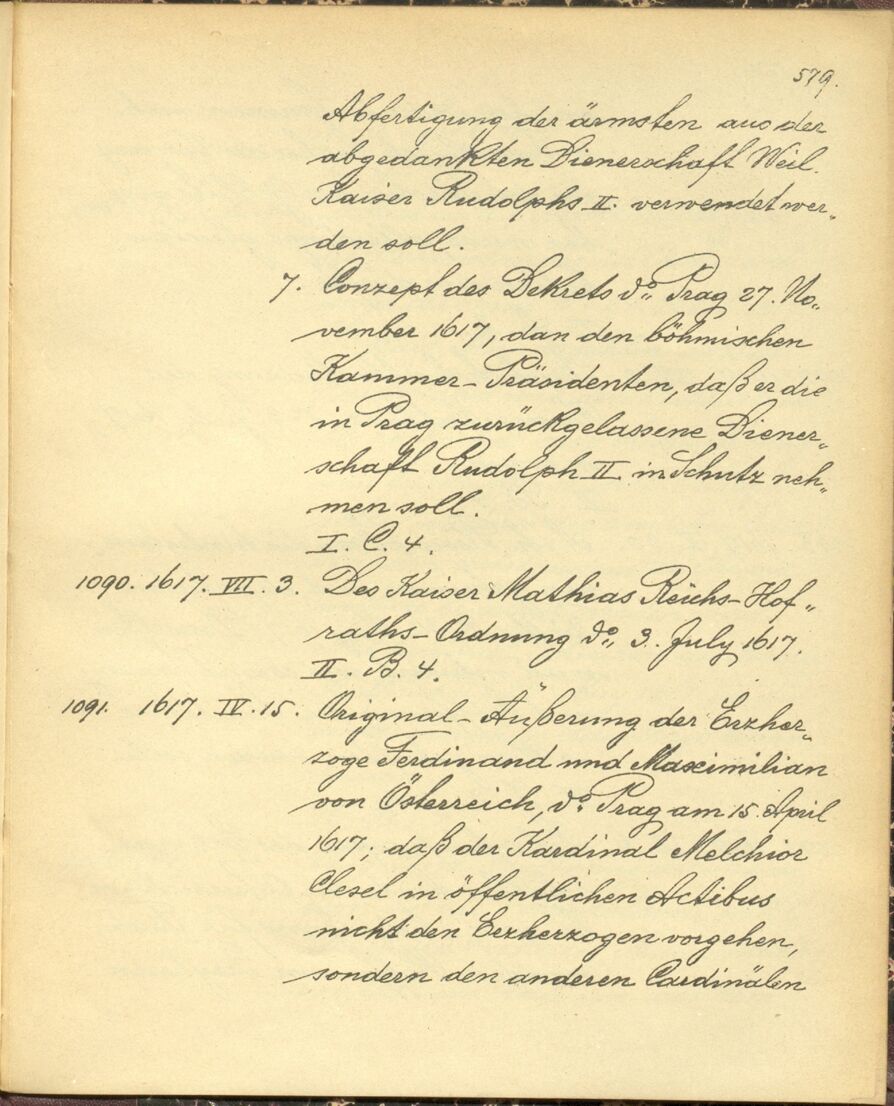 579.
Abfertigung der ärmsten aus der
abgedankten Dienerschaft Weil.
Kaiser Rudolphs II. verwendet wer„
den soll.
7. Conzept des Dekrets do„ Prag 27. No„
vember 1617, dan den böhmischen
Kammer-Präsidenten, daß er die
in Prag zurückgelassene Diener„
schaft Rudolph II in Schutz neh„
men soll.
I. C. 4.
1090. 1617. VII. 3. Des Kaiser Mathias Reichs-Hof„
raths-Ordnung do„ 3. July 1617.
II. B. 4.
1091. 1617. IV. 15. Original-Äußerung der Erzher„
zoge Ferdinand und Maximilian
von Österreich, do„ Prag am 15. April
1617; daß der Kardinal Melchior
Clesel in öffentlichen Actibus
nicht den Erzherzogen vorgehen,
sondern den anderen Cardinälen